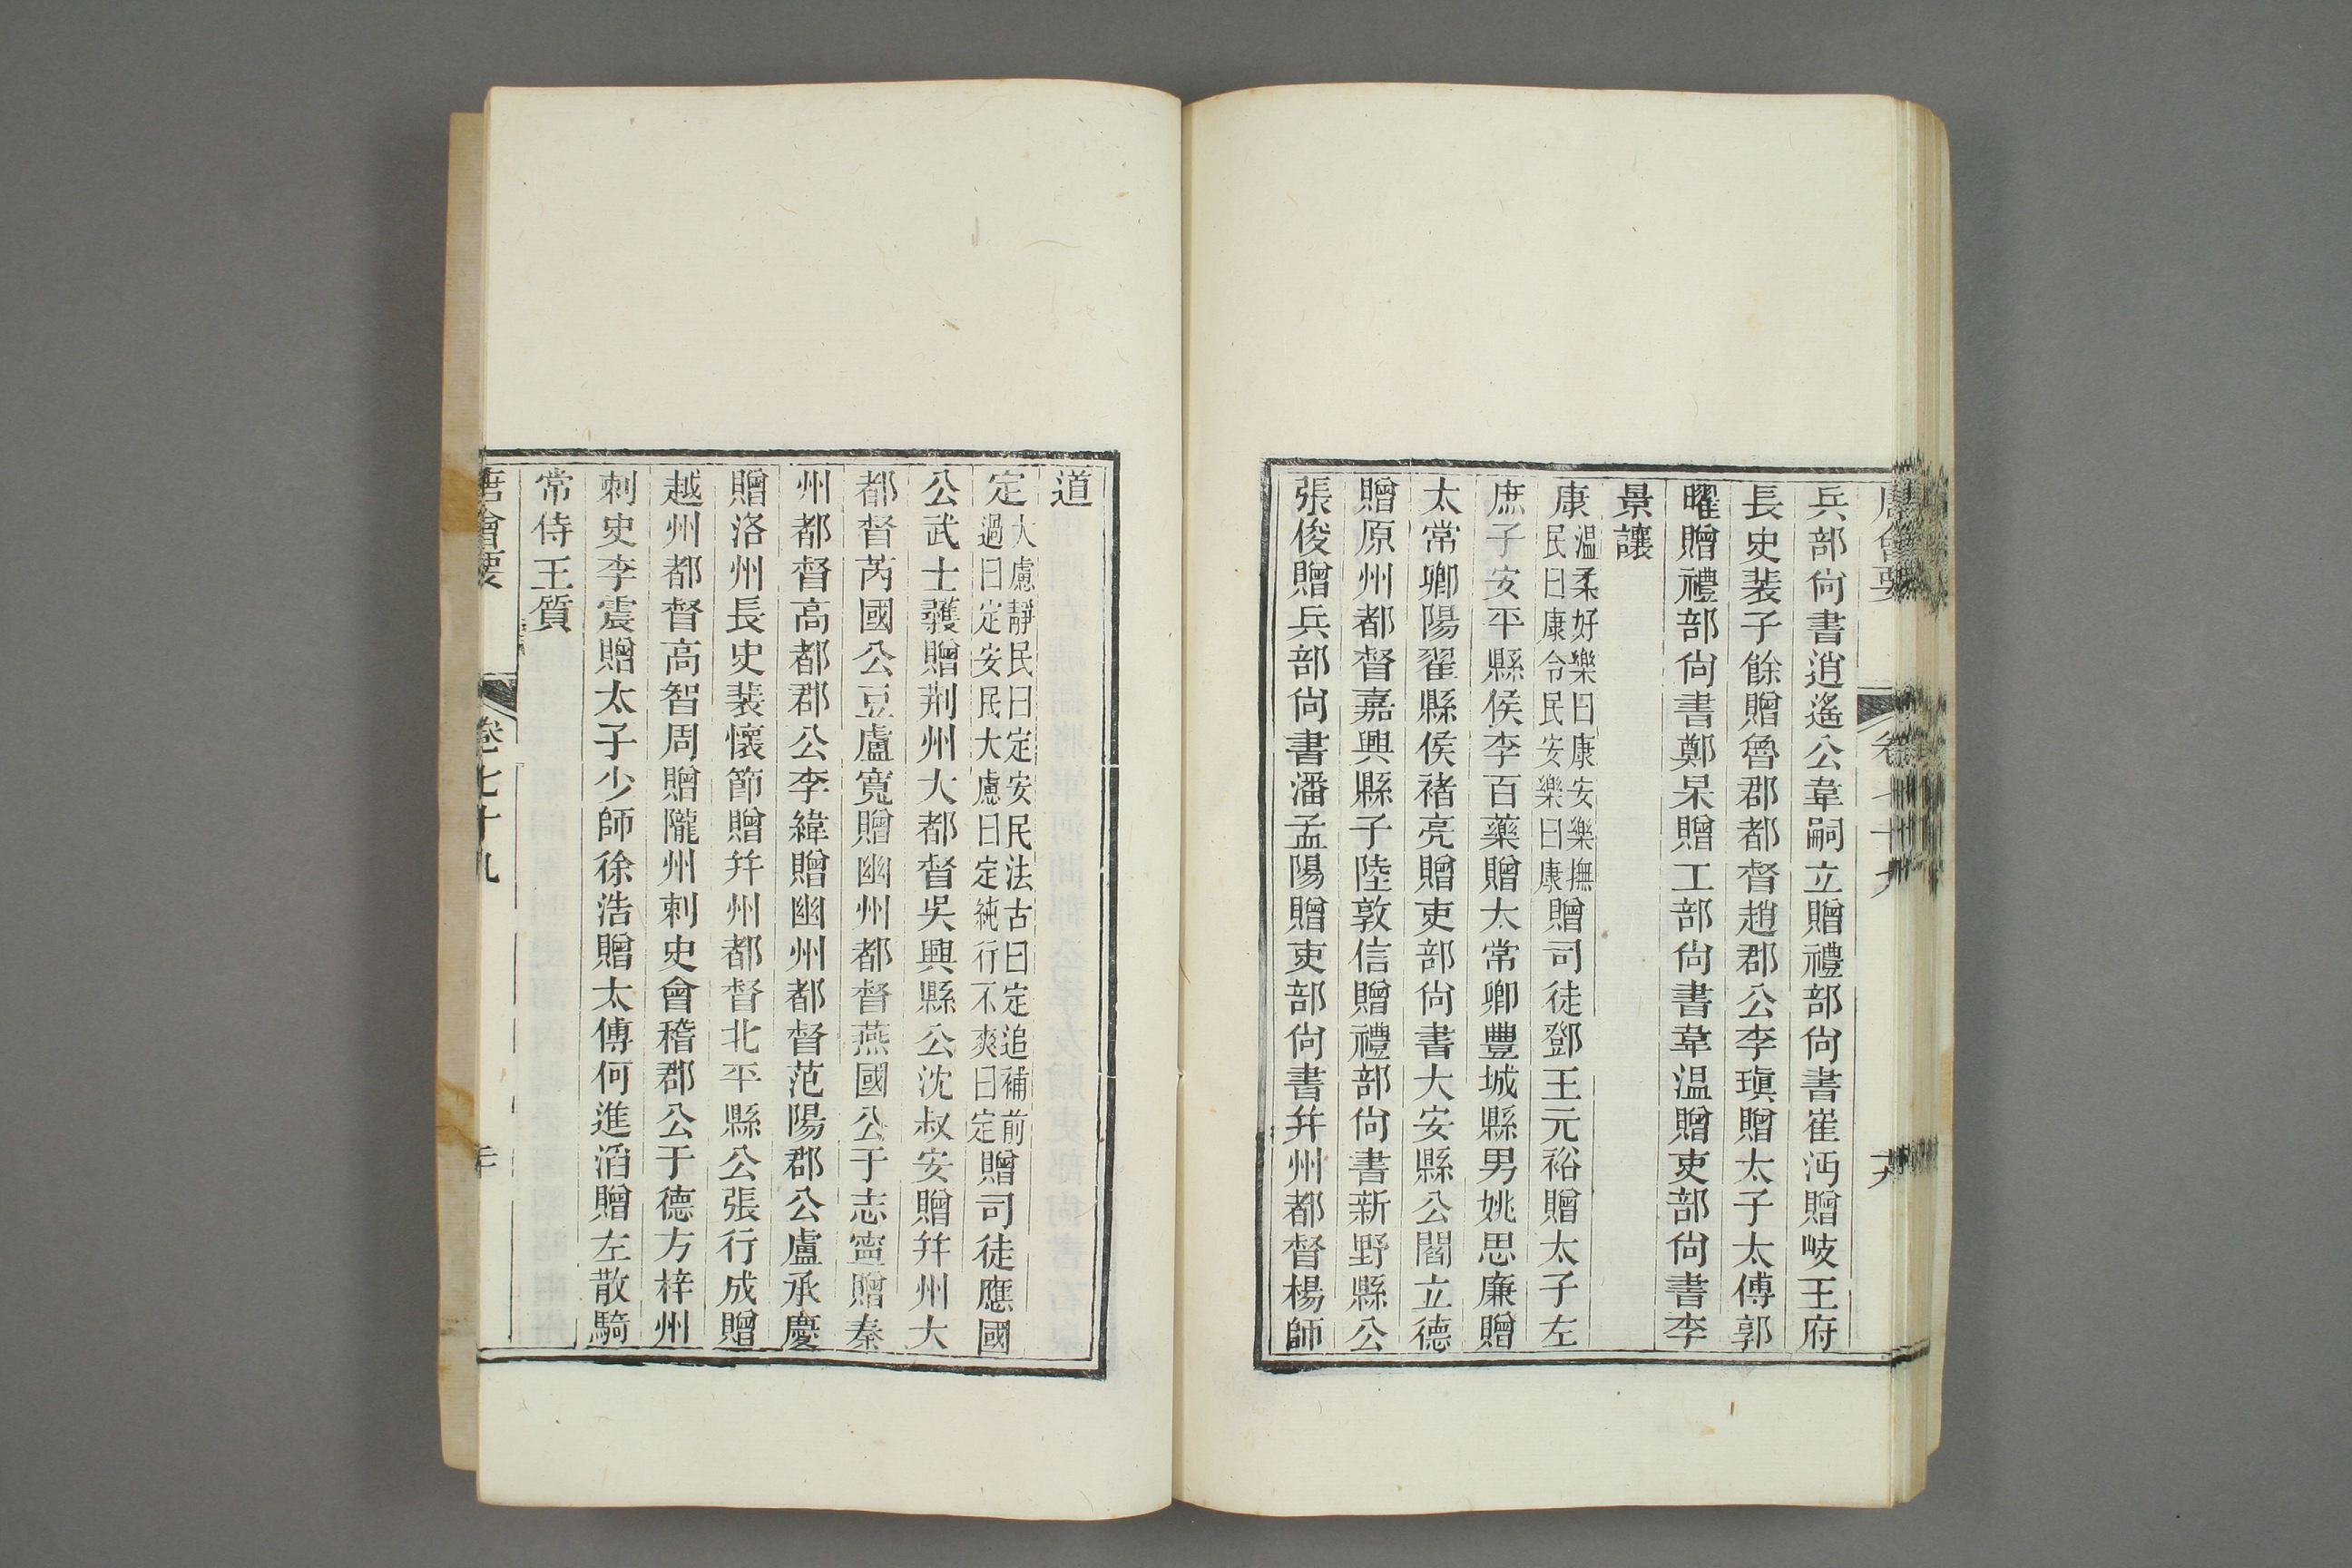 兵部尙書逍遙公韋嗣立贈禮部尙書崔沔贈岐王府
長史裴子餘贈魯郡都督趙郡公李瑱贈太子太傅郭
曜贈禮部尙書鄭杲贈工部尙書韋温贈吏部尙書李
景讓
康温柔好樂曰康安樂撫民曰康令民安樂曰康贈司徒鄧王元裕贈太子左
庶子安平縣侯李百藥贈太常卿豐城縣男姚思廉贈
太常卿陽翟縣侯褚亮贈吏部尙書大安縣公閻立德
贈原州都督嘉興縣子陸敦信贈禮部尙書新野縣公
張俊贈兵部尙書潘孟陽贈吏部尙書幷州都督楊師
道
定大慮靜民曰定安民法古曰定追補前過曰定安民大慮曰定純行不爽曰定贈司徒應國
公武士彠贈荆州大都督吳興縣公沈叔安贈幷州大
都督芮國公豆盧寬贈幽州都督燕國公于志寧贈秦
州都督高都郡公李緯贈幽州都督范陽郡公盧承慶
贈洛州長史裴懷節贈幷州都督北平縣公張行成贈
越州都督高智周贈隴州刺史會稽郡公于德方梓州
刺史李震贈太子少師徐浩贈太傅何進滔贈左散騎
常侍王質
唐會要 卷七十九